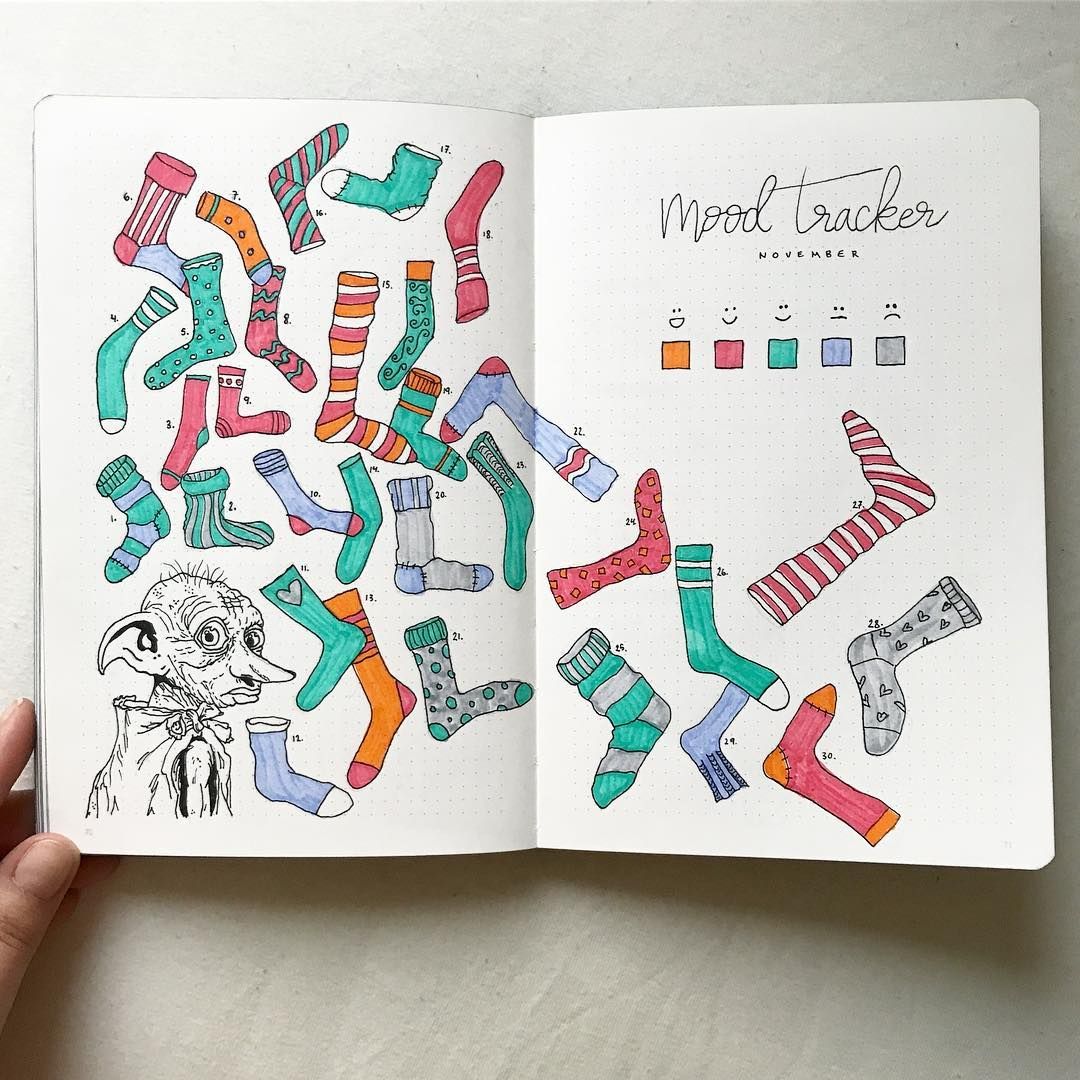 6.
7.
16.
17.
18.
4.
5.
8.
15.
3.
9.
19.
1.
2.
10.
14.
20.
23.
11.
13.
21.
12.
mood tracker
NOVEMBER
22.
24.
26.
27.
25.
28.
29.
30.
71